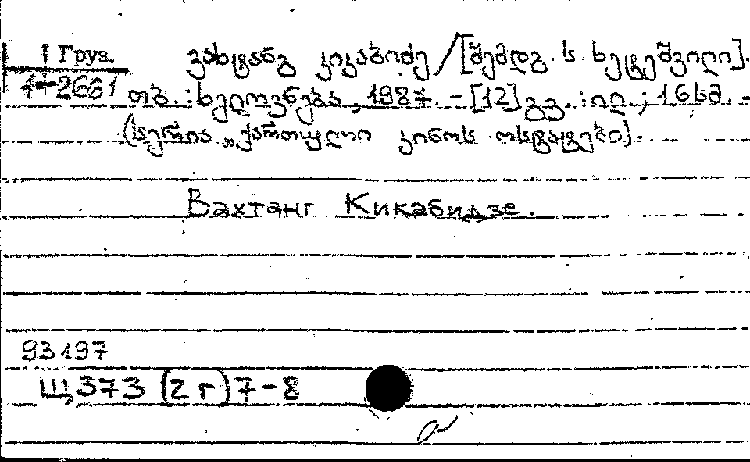 1 Груз. ვახტანგ კიკაბიძე / [შემდგ. ს. ხეტეშვილი].
1-2661 თბ. : ხელოვნება, 1987. - [12] გვ. : ილ. ; 16 სმ. -
(სერია „ქართული კინოს ოსტატები).
Вахтанг Кикабидзе.
93197
Щ373(2Г)7-8